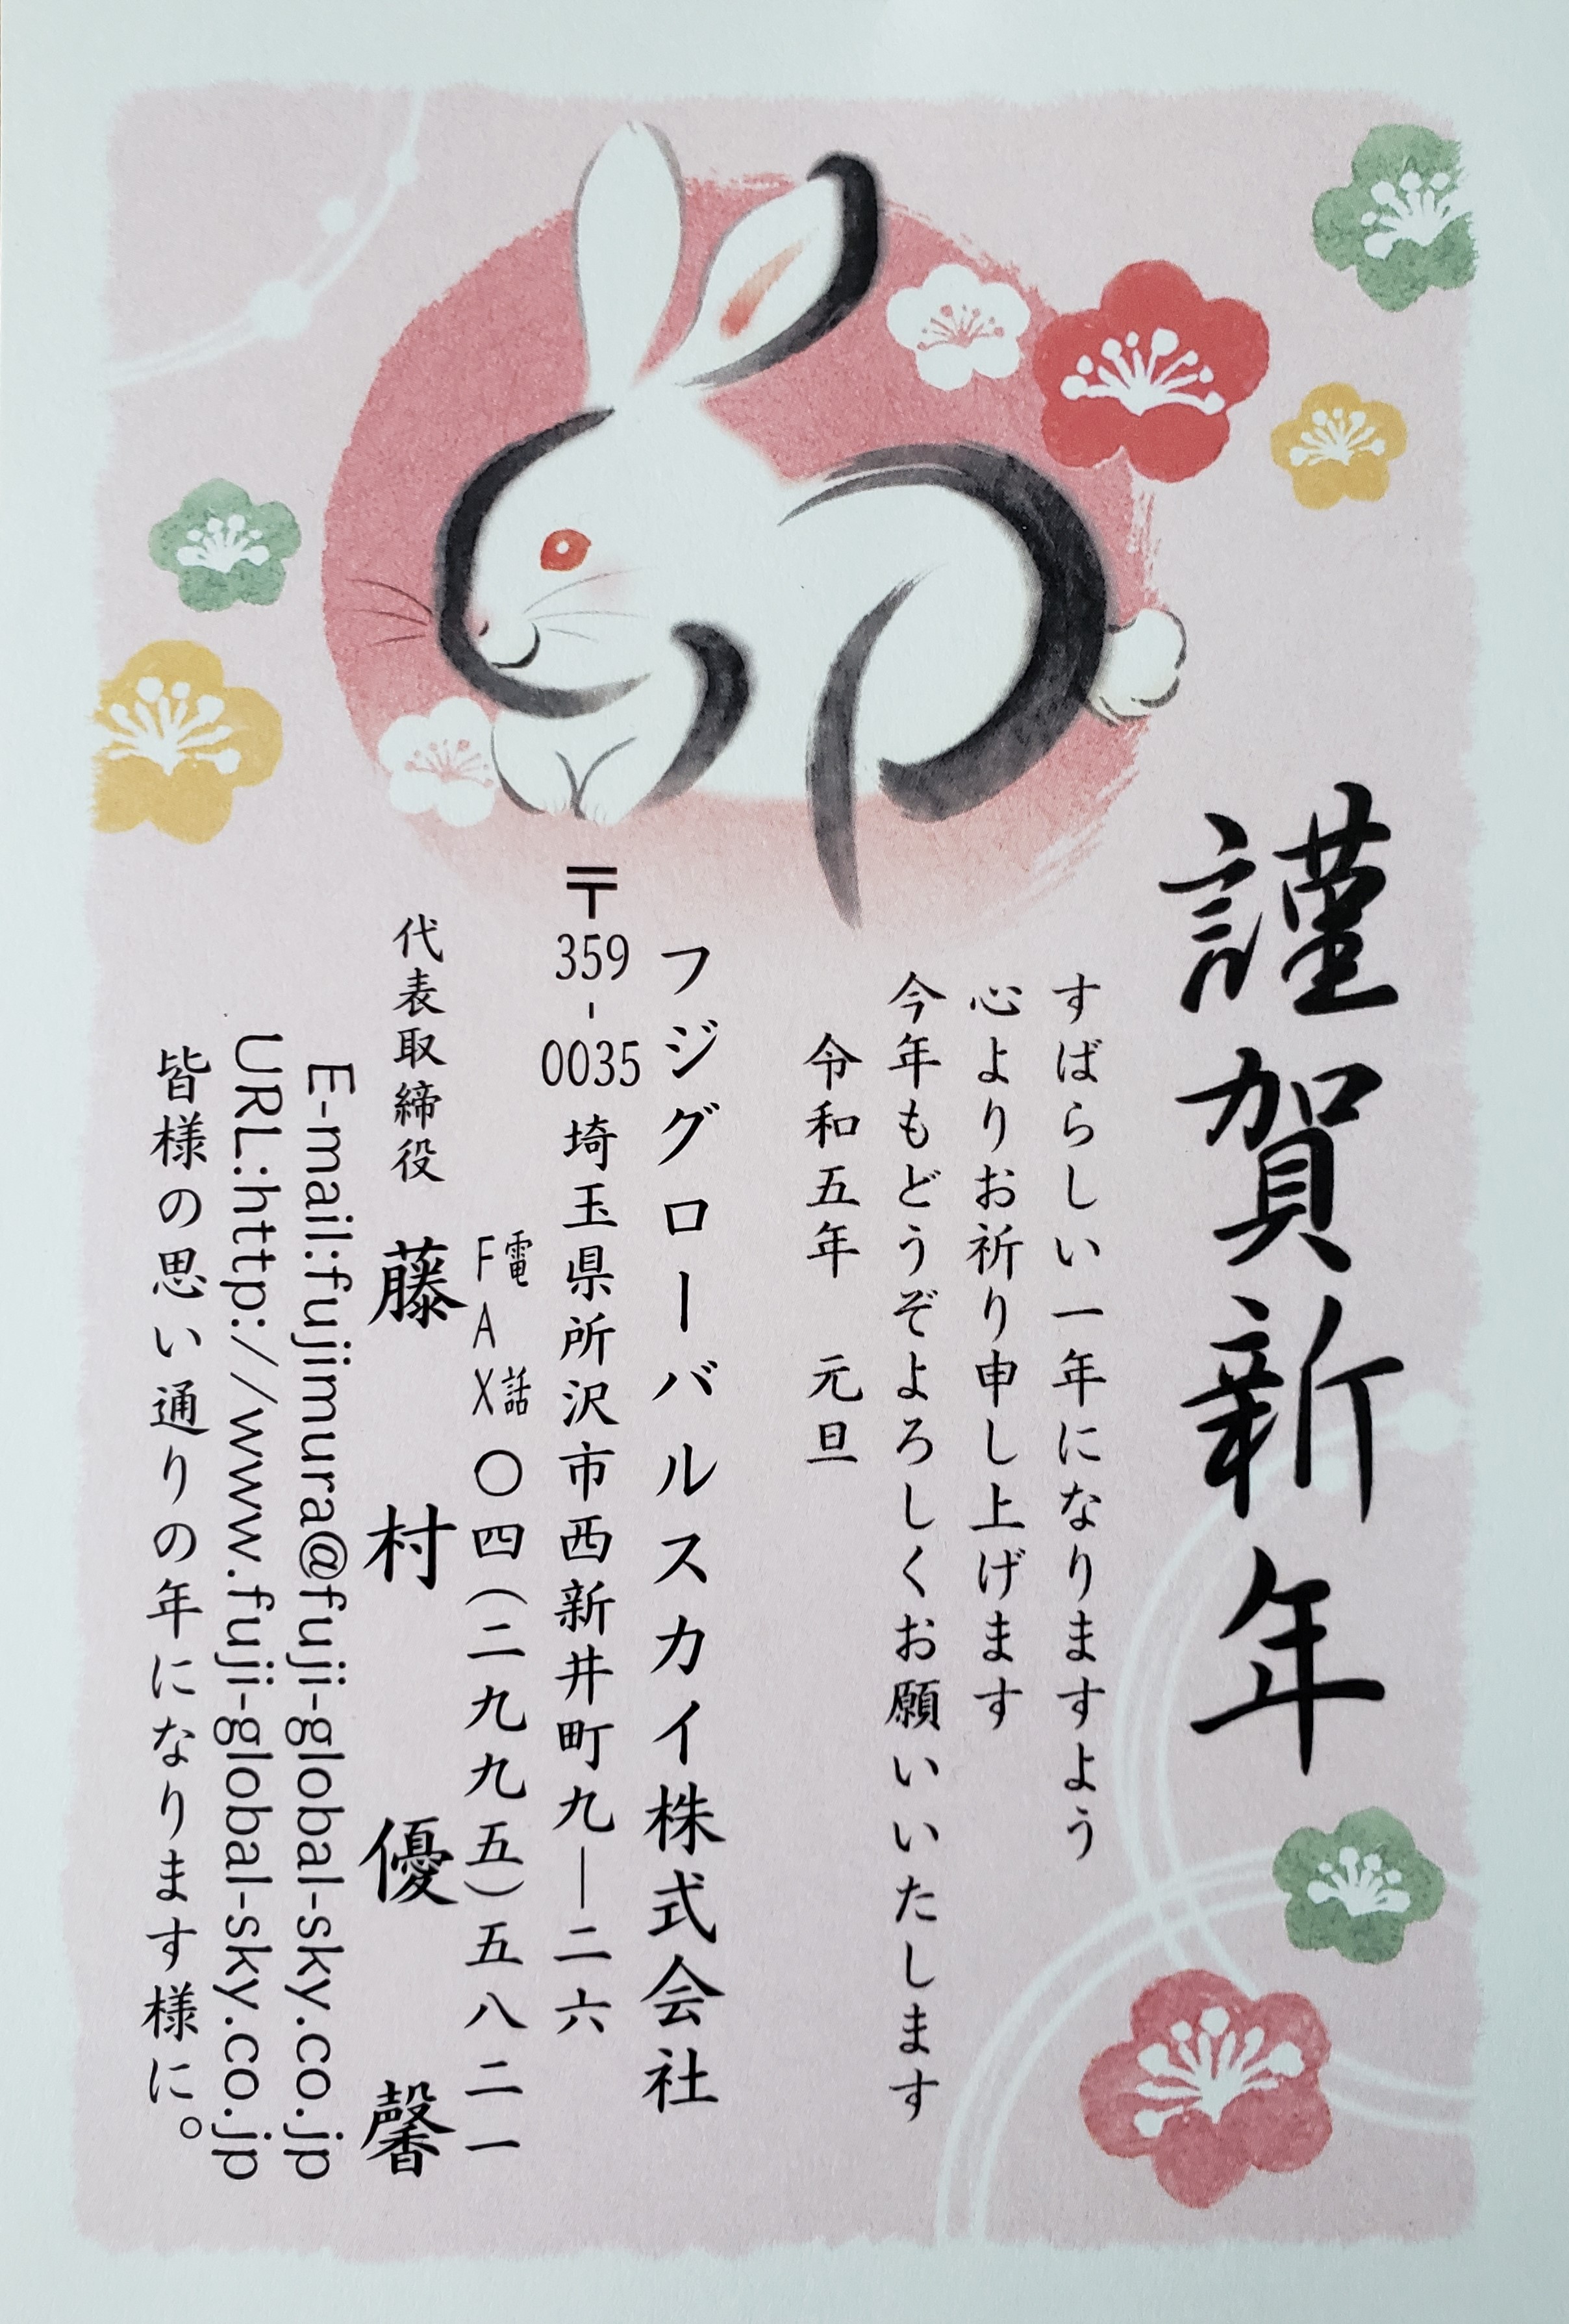 謹賀新年
すばらしい一年になりますよう
心よりお祈り申し上げます
今年もどうぞよろしくお願いいたします
令和五年 元旦
フジグローバルスカイ株式会社
〒359-0035 埼玉県所沢市西新井町九―二六
電話
FAX 〇四(二九九五)五八二一
代表取締役 藤村優馨
E-mail:fujimura@fuji-global-sky.co.jp
URL:http://www.fuji-global-sky.co.jp
皆様の思い通りの年になります様に。